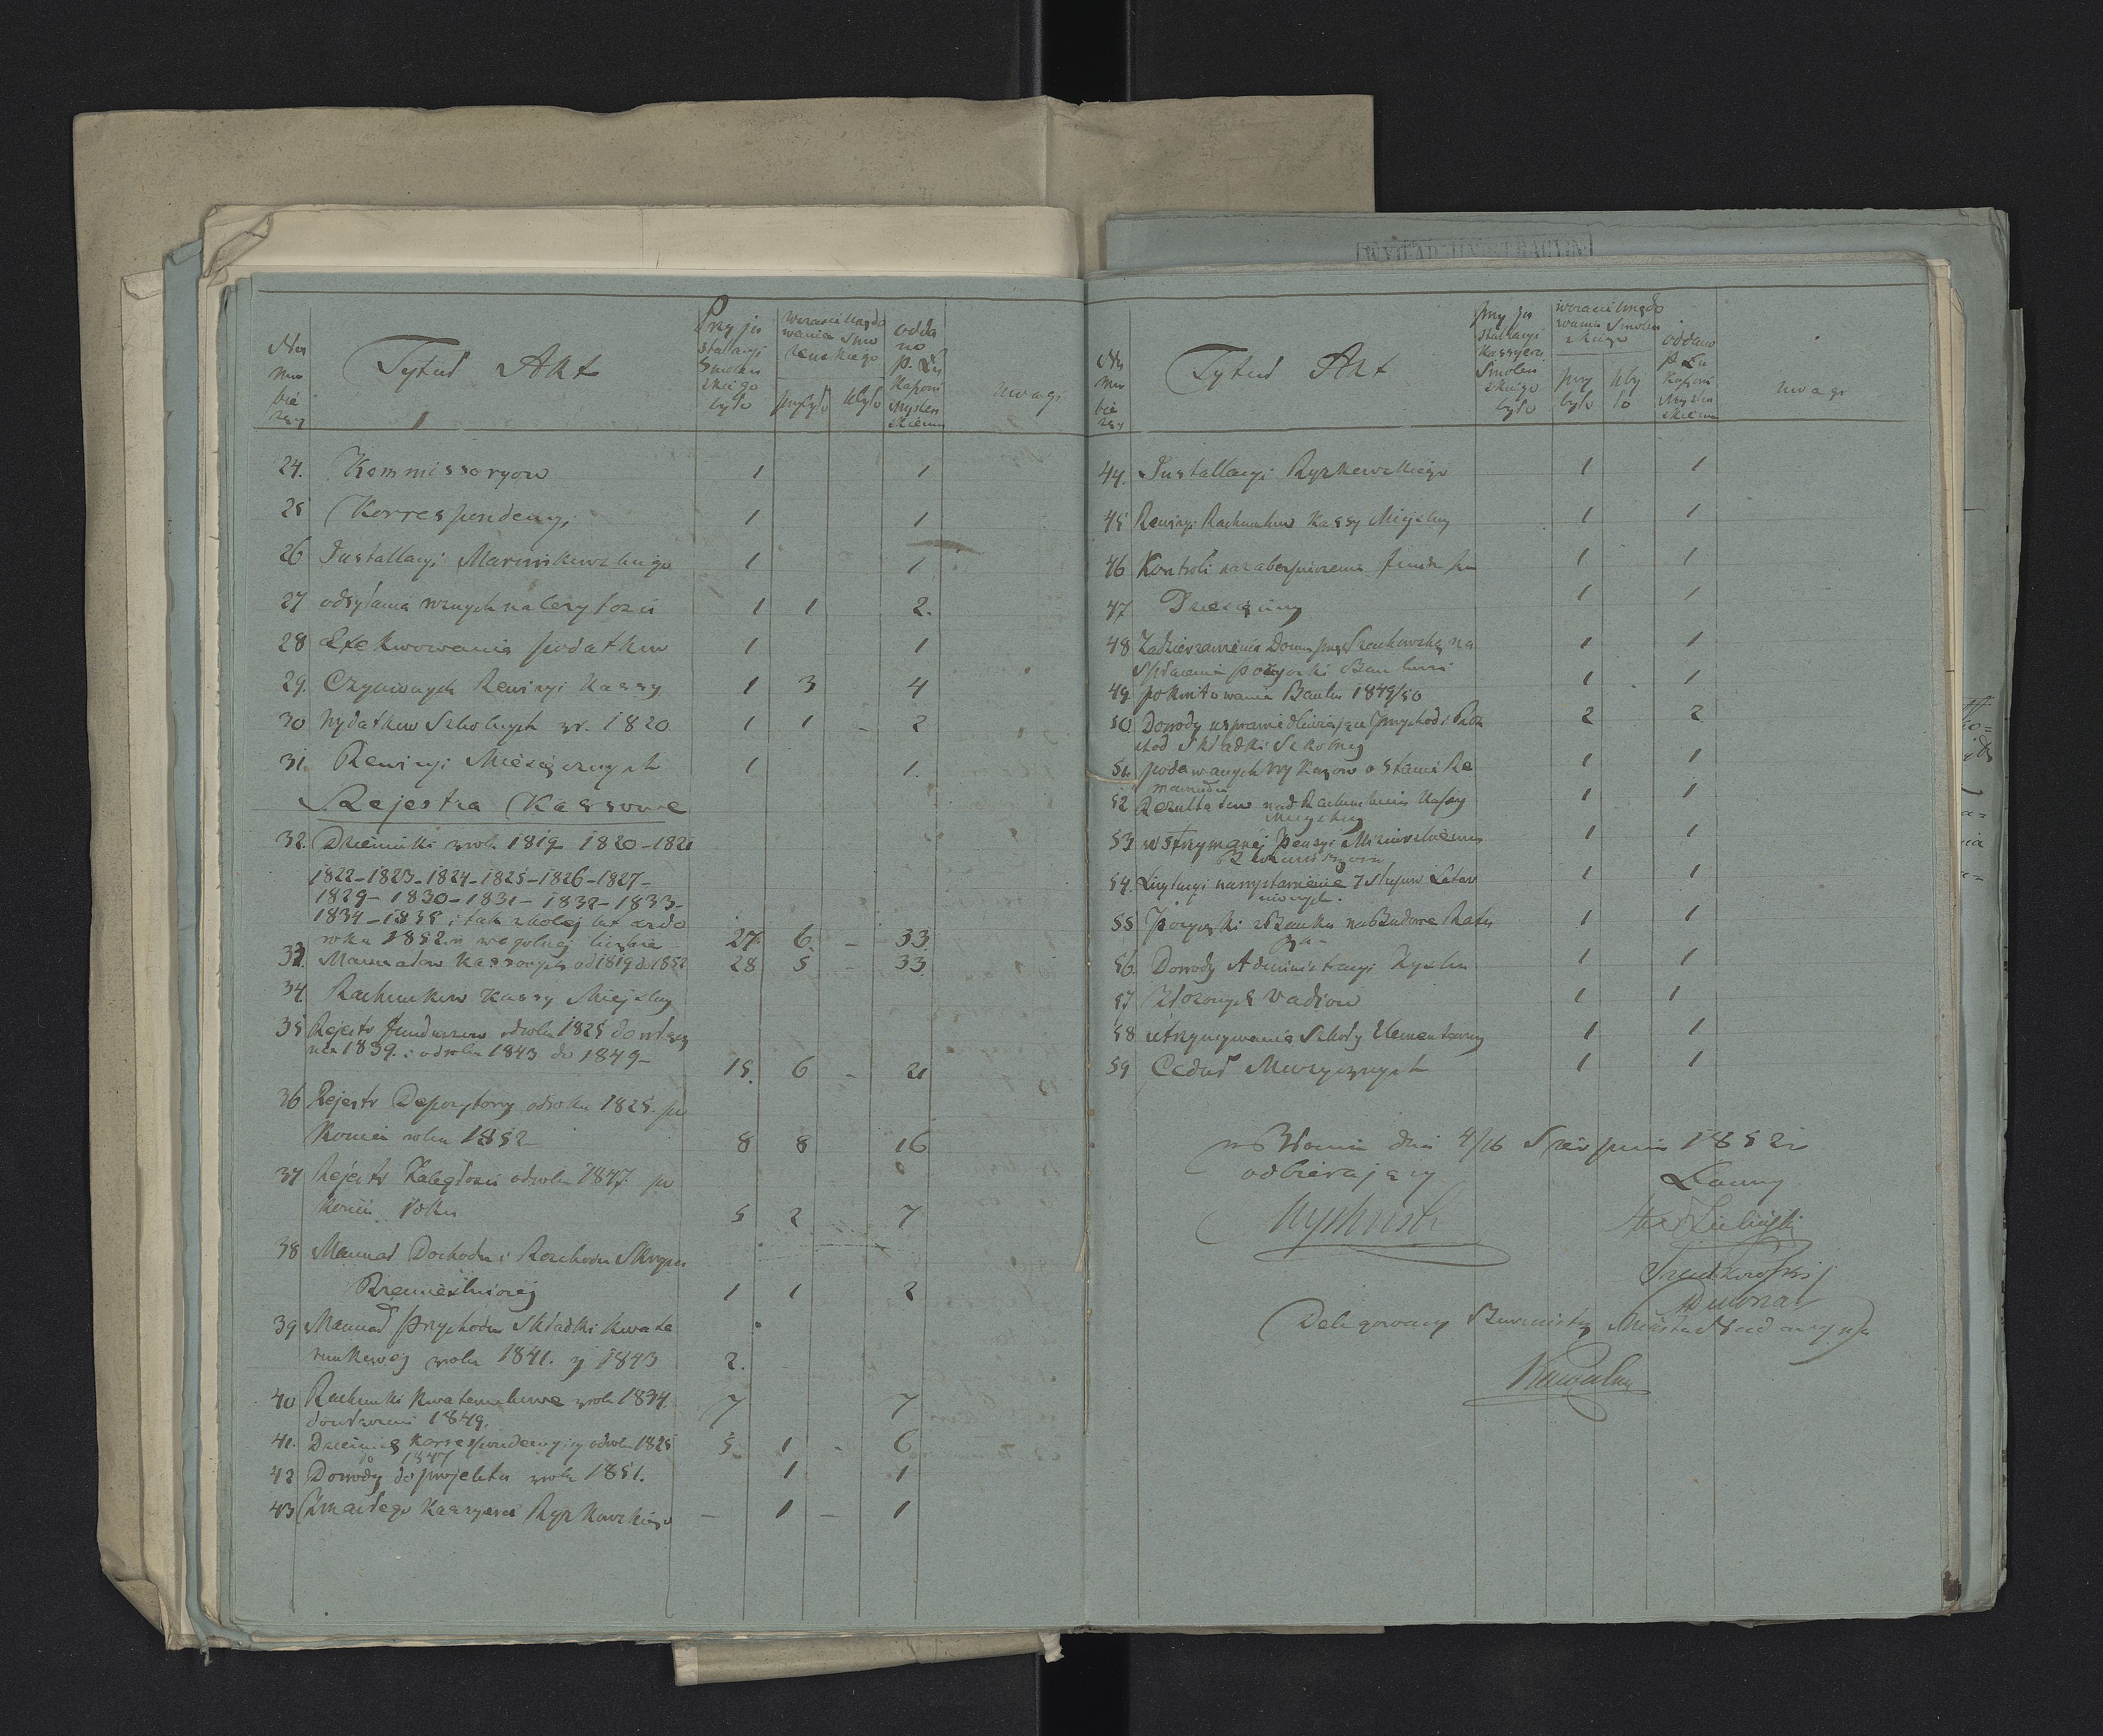 Nu
mer
bie
żący
Tytuł Akt
Przy in
stallacyi
Smoleń
skiego
było
w czasie urzędo
wania Smo
leńskiego
przybyło
ubyło
odda
no
P. Lu
Kaspro
Myszkow
skiemu
uwagi
24. Kommissaryow 1 1
25 Korrespondencyi 1 1
26 Installacyi Marcinkowskiego 1 1
27 odsyłania należytości 1 1 2.
28 Exekwowania podatkow 1 1
29. Czynionych Rewizyi Kassy 1 3 4
30 Wydatkow Szkolnych z r. 1820 1 1 - 2
31. Rewizyi Miesięcznych 1 1.
Rejestra Kassowe
32. Dzienniki z roku 1819 1820 - 1821
1822 - 1823 - 1824 - 1825 - 1826 - 1827 -
1829 - 1830 - 1831 - 1832 - 1833 -
1834 - 1835 i tak z kolej lat aż do
roku 1852. w ogólnej liczbie 27. 6 - 33
33. Manuałow Kassowych od 1819 do 1852 28 5 - 33
34 Rachunkow Kassy Miejskiej
35 Rejestr funduszow od roku 1825 do
1839. i od roku 1843 do 1849 - 15. 6 - 21
36 Rejestr Depozytowy od roku 1825. po
Koniec roku 1852 8 8 16
37 Rejestr Zaległości od roku 1847. po
koniec roku 5 2 7
38 Manuał Dochodu i Rozchodu Skrzyni
Rzemieślniczej 1 1 2
39 Manuał Przychodu Składki Kwate
runkowej z roku 1841. y 1843 2.
40 Rachunki Kwaterunkowe z roku 1834.
1849. 7 7
41. Dziennik Korrespondencyiny od roku 1825
do 1847 5 1 - 6
42 Dowody do projektu z roku 1851. 1 1
43 Zmarłego Kassyera Ryszkowskiego - 1 - 1
Nu
mer
bie
żący
Tytuł Akt
przy in
stallacyi
Kassyera
Smoleń
skiego
było
w czasie urzędo
wania Smoleń
skiego
przy
było
uby
ło
oddano
P. Lu
Kaspro
Myszkow
skiemu
uwagi
44. Installacyi Ryszkowskiego 1 1
45 Rewizyi Rachunkow Kassy Miejskiej 1 1
46 Kontroli zabezpieczenia 1 1
47 Dziesięciny 1 1
48 Zadzierżawienia Domu przez Szachowską na
Spłacenie pożyczki Bankowi 1 1
49 pokwitowania Banku 1849/50 1 1
50 Dowody usprawiedliwiające Przychod i Roz
chod Składki Szkolnej 2 2
51. podawanych Wykazow o Stanie Re
manentu 1 1
52 Rezultatow nad Rachunkami Kassy
Miejskiej 1 1
53 wstrzymanej Pensyi
Burmistrzowi 1 1
54. Licytacyi na wystawienie 7 Słupow Latar
niowych. 1 1
55 Pożyczki z Banku na Budowe Ratu
sza - 1 1
56. Dowody Administracyi 1 1
57 Złożonych Vadiow 1 1
58 utrzymywania Szkoły Elementarney 1 1
59 Ceduł Muzycznych 1 1
w Błoniu dnia 4/16 Sierpnia 1852 r
odbierający
Ławnicy
Delegowany Burmistrz Miasta